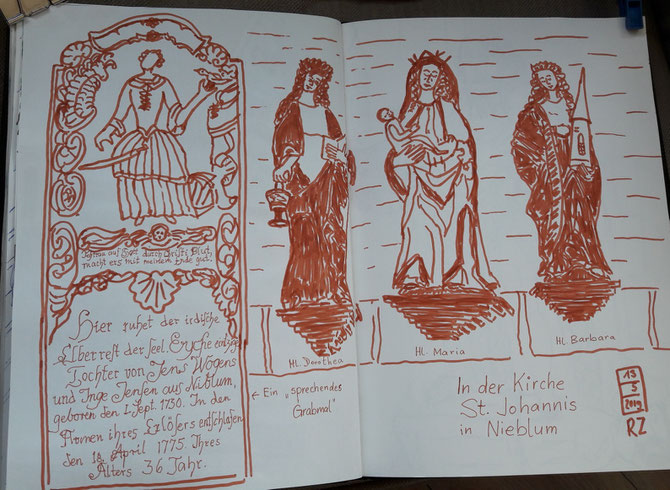 auf Gott durch Christi Blut,
macht ers mit meinem Ende gud.
Hier ruhet der irdische
Überrest der seel. Eryche einzige
Tochter von Jens Wögens
und Inge Jensen aus Niblum,
geboren den 1. Sept. 1730. In den
Armen ihres Erlösers entschlafen
den April 1775 Ihres
Alters 36 Jahr.
← Ein „sprechendes
Grabmal"
Hl. Dorothea
Hl. Maria
Hl. Barbara
In der Kirche
St. Johannis
in Nieblum
13
5
2019
RZ